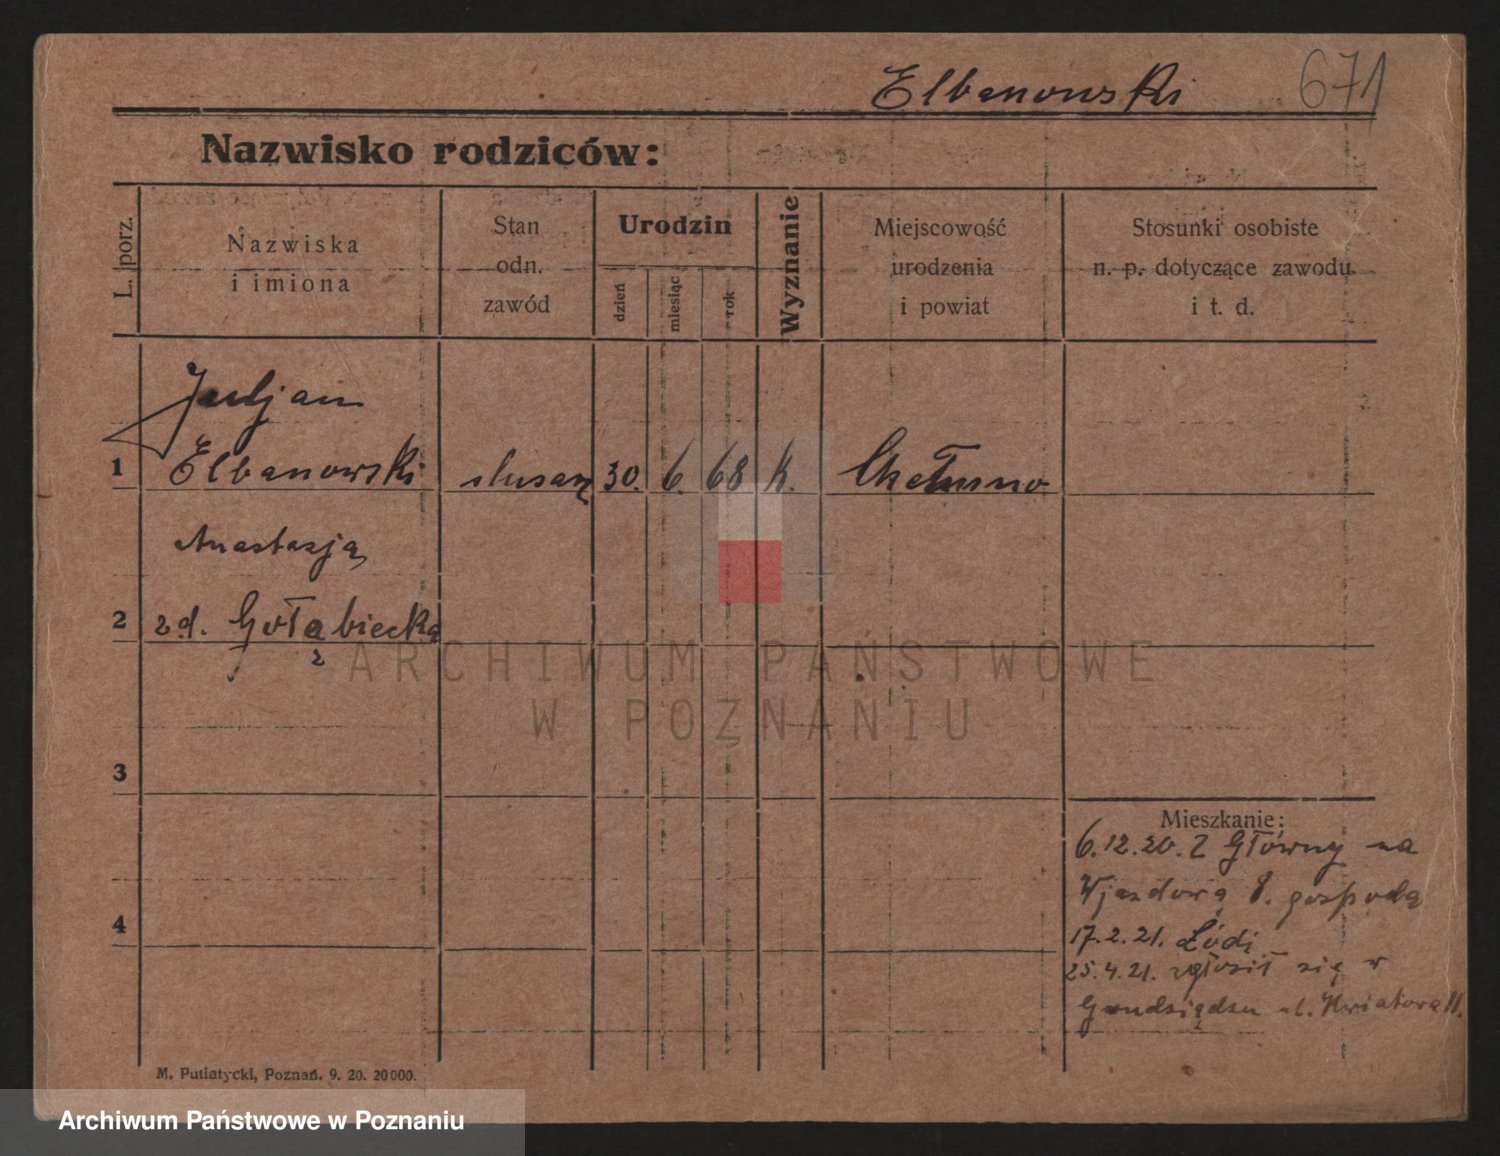 Elbanowski 671
Nazwisko rodziców:
L. porz.
Nazwiska
i imiona
Stan
odn.
zawód
Urodzin
dzień
miesiąc
rok
Wyznanie
Miejscowość
urodzenia
i powiat
Stosunki osobiste
n. p. dotyczące zawodu
i t. d.
Juljan
1 Elbanowski 30. 6. 68 k.
Anastazją
2 Gołąbiecką
3
4
Mieszkanie:
6.12.20. Z Główny na
Wjazdową 8. gospodą
17.2.21. Łódi
25.4.21. zgłosił się w
Grudziądzu ul. Kwiatowa 11.
ARCHIWUM PAŃSTWOWE
W POZNANIU
M. Putiatycki, Poznań. 9. 20. 20000.
Archiwum Państwowe w Poznaniu